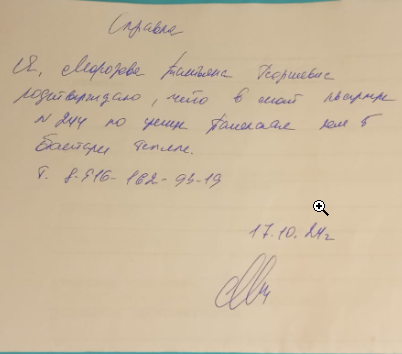 Справка
Я, Морозова Татьяна
подтверждаю, что в моей квартире
N 244 по улице дом 5
батареи теплые.
т. 8-916-162-93-19
17.10.24г